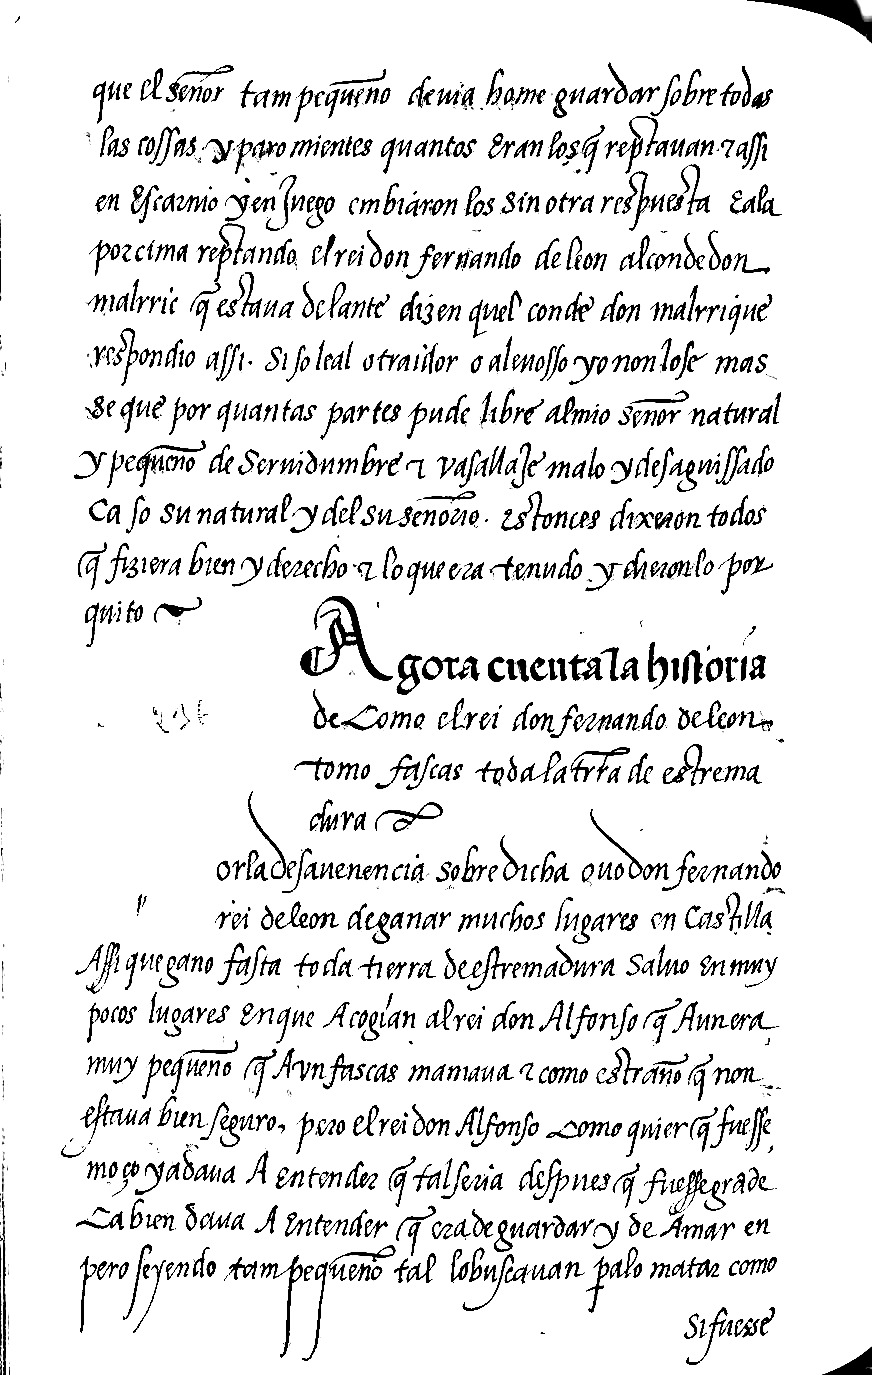 que el señor tam pequeño deuia home guardar sobre todas
las cossas y paro mientes quantos eran los q̃ reptauan ⁊ assi
en escarnio y en Juego embiaron los sin otra respuesta E ala
por cima reptando el rei don fernando de leon al conde don
malrric q̃ estaua delante dizen quel conde don malrrique
respondio assi. si so leal o traidor o aleuosso yo non lo se mas
se que por quantas partes pude libre al mio señor natural
y pequeño de seruidumbre ⁊ vasallaJe malo y desaguissado
Ca so su natural y del su señorio. Estonces dixeron todos
q̃ fiziera bien y derecho ⁊ lo que era tenudo y dieron lo por
quito
Agora cuenta la historia
de Como el rei don fernando de leon
tomo fascas toda la trr̃a de estrema
dura
or la desauenencia sobre dicha ouo don fernando
rei de leon de ganar muchos lugares en Castilla
Assi que gano fasta toda tierra de estremadura Saluo en muy
pocos lugares en que Acogian al rei don Alfonso q̃ Aun era
muy pequeño q̃ Avn fascas mamaua ⁊ como estraño q̃ non
estaua bien seguro, pero el rei don Alfonso Como quier q̃ fuesse
moço ya daua A entender q̃ tal seria despues q̃ fuesse grãde
Ca bien daua A entender q̃ era de guardar y de Amar en
pero seyendo tam pequeño tal lo buscauan ꝑa lo matar como
Si fuesse